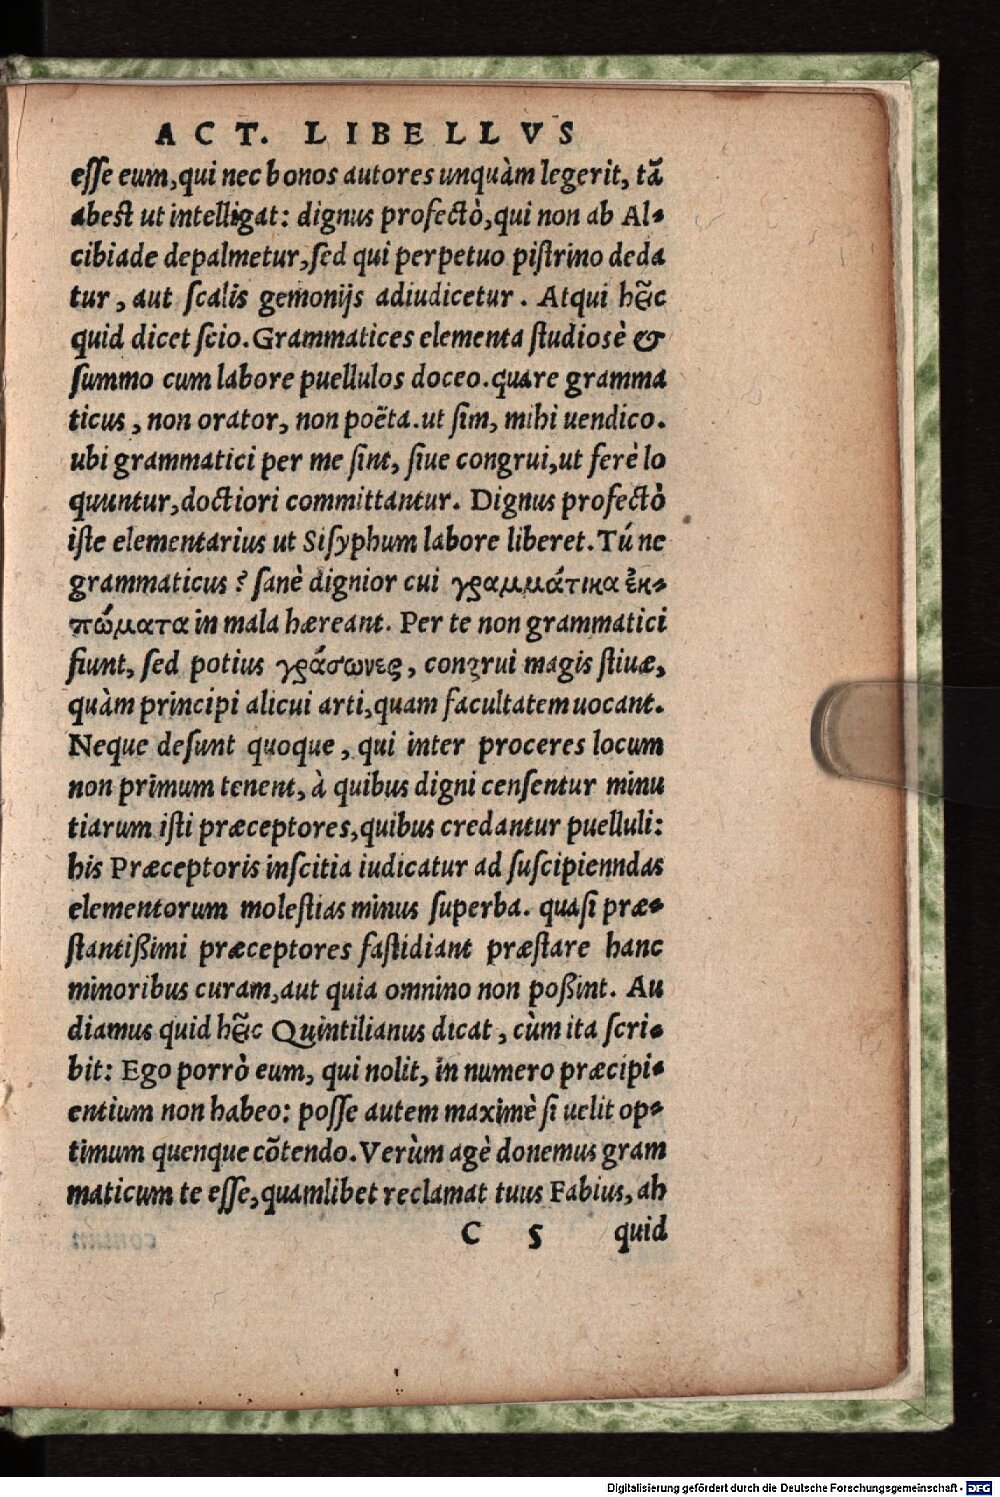 ACT. LIBELLVS
esse eum, qui nec bonos autores unquàm legerit, tã
abest ut intelligat: dignus profectò, qui non ab Al-
cibiade depalmetur, sed qui perpetuo pistrino deda
tur, aut scalis gemonijs adiudicetur. Atqui hæ̃c
quid dicet scio. Grammatices elementa studiosè &
summo cum labore puellulos doceo. quare gramma
ticus, non orator, non poëta. ut sim, mihi uendico.
ubi grammatici per me sint, siue congrui, ut ferè lo
quuntur, doctiori committantur. Dignus profectò
iste elementarius ut Sisyphum labore liberet. Tú ne
grammaticus? sanè dignior cui γραμμάτικα ἐκ-
πώματα in mala hæreant. Per te non grammatici
fiunt, sed potius γράσωνες, congrui magis stiuæ,
quàm principi alicui arti, quam facultatem uocant.
Neque desunt quoque, qui inter proceres locum
non primum tenent, à quibus digni censentur minu
tiarum isti præceptores, quibus credantur puelluli:
his Præceptoris inscitia iudicatur ad suscipienndas
elementorum molestias minus superba. quasi præ-
stantißimi præceptores fastidiant præstare hanc
minoribus curam, aut quia omnino non poßint. Au
diamus quid hæ̃c Quintilianus dicat, cùm ita scri-
bit: Ego porrò eum, qui nolit, in numero præcipi-
entium non habeo: posse autem maximè si uelit op-
timum quenque cõtendo. Verùm agè donemus gram
maticum te esse, quamlibet reclamat tuus Fabius, ah
C 5 quid
Digitalisierung gefördert durch die Deutsche Forschungsgemeinschaft - DFG